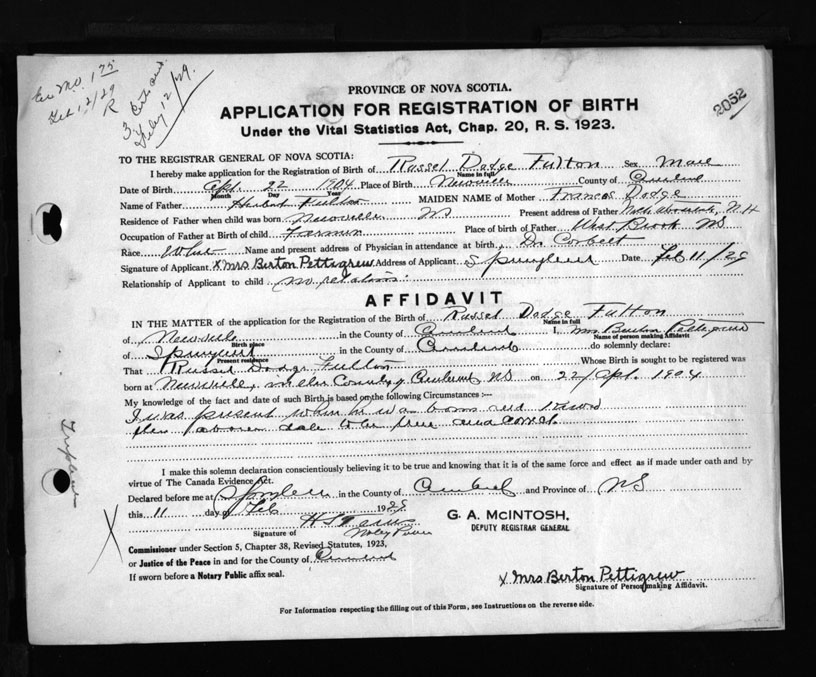 PROVINCE OF NOVA SCOTIA.
APPLICATION FOR REGISTRATION OF BIRTH
Under the Vital Statistics Act, Chap. 20, R. S. 1923.
2052
TO THE REGISTRAR GENERAL OF NOVA SCOTIA:
I hereby make application for the Registration of Birth of Russel Dodge Fulton Sex Male
Name in full
Date of Birth Apl. 22 1904 Place of Birth Newville County of
Month Day Year
Name of Father Fulton MAIDEN NAME of Mother Frances Dodge
Residence of Father when child was born Newville NS Present address of Father N.H
Occupation of Father at Birth of child Farmer Place of birth of Father West Brook NS
Race White Name and present address of Physician in attendance at birth, Dr Corbett
Signature of Applicant x Mrs Berton Pettigrew Address of Applicant Date Feb 11/29
Relationship of Applicant to child no relation
AFFIDAVIT
IN THE MATTER of the application for the Registration of the Birth of Russel Dodge Fulton
Name in full
of Newville in the County of I, Mrs Burton Pettigrew
Birth place Name of person making Affidavit
of in the County of do solemnly declare:
Present residence
That Russel Dodge Fulton Whose Birth is sought to be registered was
born at Newville, in the County of NS on 22/Apl. 1904
My knowledge of the fact and date of such Birth is based on the following Circumstances :—
I was present when he was born and know
the above date to be true and correct.
I make this solemn declaration conscientiously believing it to be true and knowing that it is of the same force and effect as if made under oath and by
virtue of The Canada Evidence Act.
Declared before me at in the County of and Province of NS
this 11 day of Feb 1929
G. A. McINTOSH,
DEPUTY REGISTRAR GENERAL
Signature of
Commissioner under Section 5, Chapter 38, Revised Statutes, 1923,
or Justice of the Peace in and for the County of
If sworn before a Notary Public affix seal.
x Mrs Berton Pettigrew
Signature of Person making Affidavit.
For Information respecting the filling out of this Form, see Instructions on the reverse side.